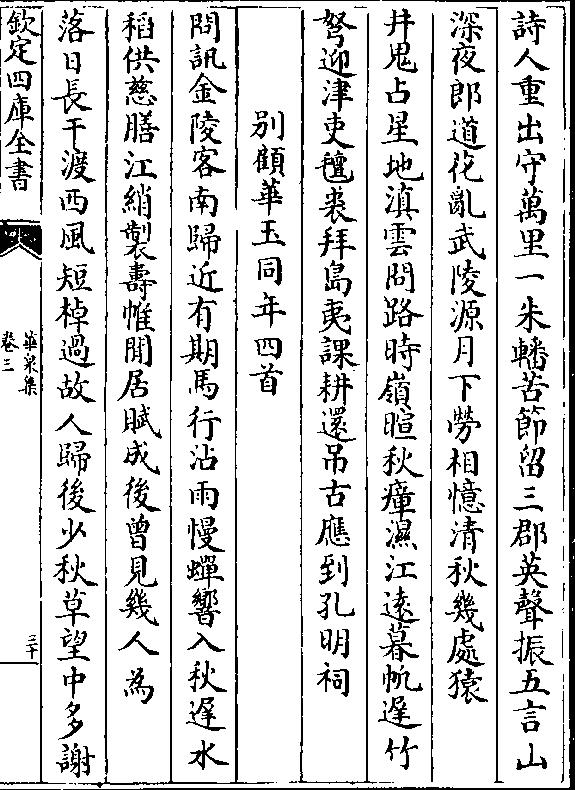 詩人重出守萬里一朱轓苦節留三郡英聲振五言山
深夜郎道花亂武陵源月下勞相憶清秋幾處猿
井鬼占星地滇雲問路時嶺暄秋瘴濕江遠暮帆遲竹
弩迎津吏氊裘拜島夷課耕還吊古應到孔明祠
別顧華玉同年四首
問訊金陵客南歸近有期馬行沾雨慢蟬響入秋遲水
稻供慈膳江綃製壽帷閒居賦成後曾見幾人為
落日長干渡西風短棹過故人歸後少秋草望中多謝
欽定四庫全書
華泉集
卷三
三十